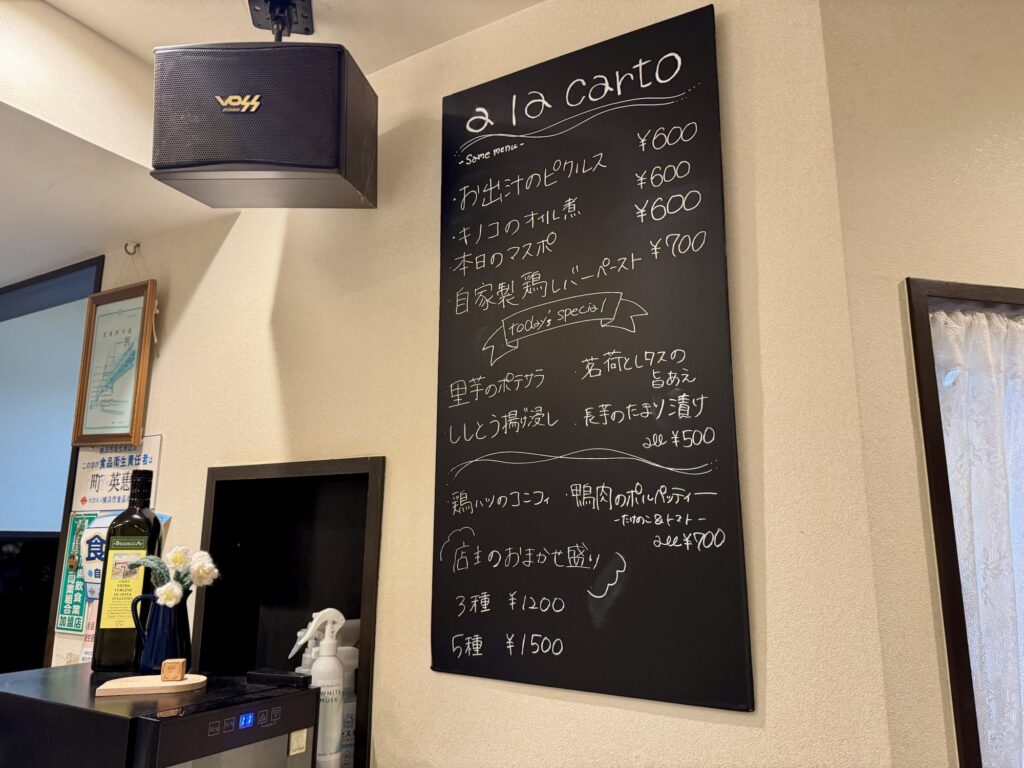 VOSS
a la carto
- Same menu -
・お出汁のピクルス ¥600
・キノコのオイル煮 ¥600
・本日のマスポ ¥600
・自家製鶏レバーペースト ¥700
today's special
・里芋のポテサラ
・茗荷としラスの
旨あえ
・ししとう揚げ浸し
・長芋のたまり漬け
all ¥500
・鶏ハツのコニフィ
・鴨肉のポルペッティー
-たけのこ&トマト-
all ¥700
店主のおまかせ盛り
3種 ¥1200
5種 ¥1500
この店の食品衛生責任者は
町 英恵
食
飲食業
同業組合
加盟店
BREZZECCA
EXTRA
VERGINE
DI OLIVA
ITALIANO
WHITE
MUSK